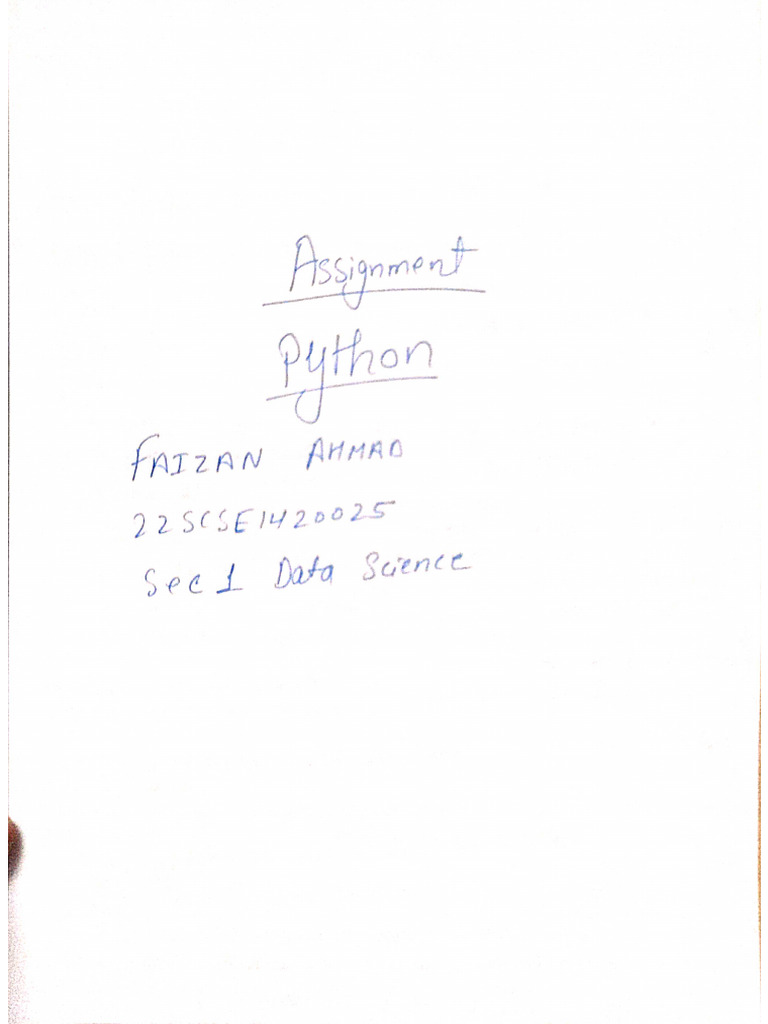 Assignment
Python
FAIZAN AHMAD
22SCSE1420025
Sec 1 Data Science